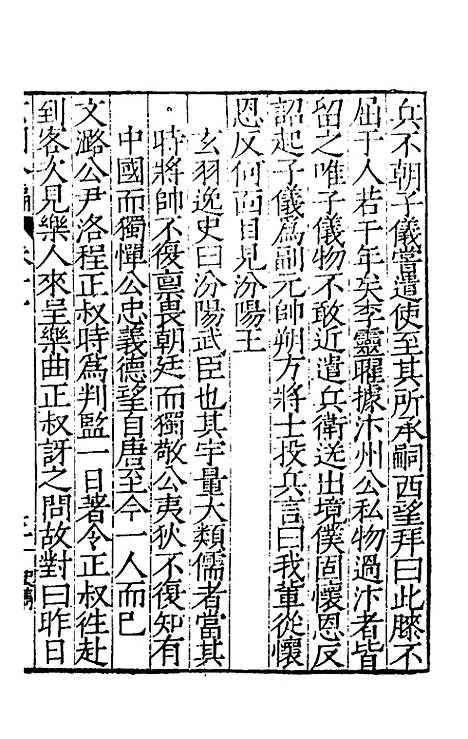 兵不朝子儀嘗遣使至其所承嗣西望拜曰此膝不
屈于人若干年矣李靈曜據汴州公私物過汴者皆
留之唯子儀物不敢近遣兵衛送出境僕固懷恩反
詔起子儀為副元帥朔方將士投兵言曰我輩從懷
恩反何面目見汾陽王
玄羽逸史曰汾陽武臣也其宇量大類儒者當其
時將帥不復稟畏朝廷而獨敬公夷狄不復知有
中國而獨憚公忠義德望自唐至今一人而已
文潞公尹洛程正叔時為判監一日著令正叔徃赴
到客次見樂人來呈樂曲正叔訝之問故對曰昨日